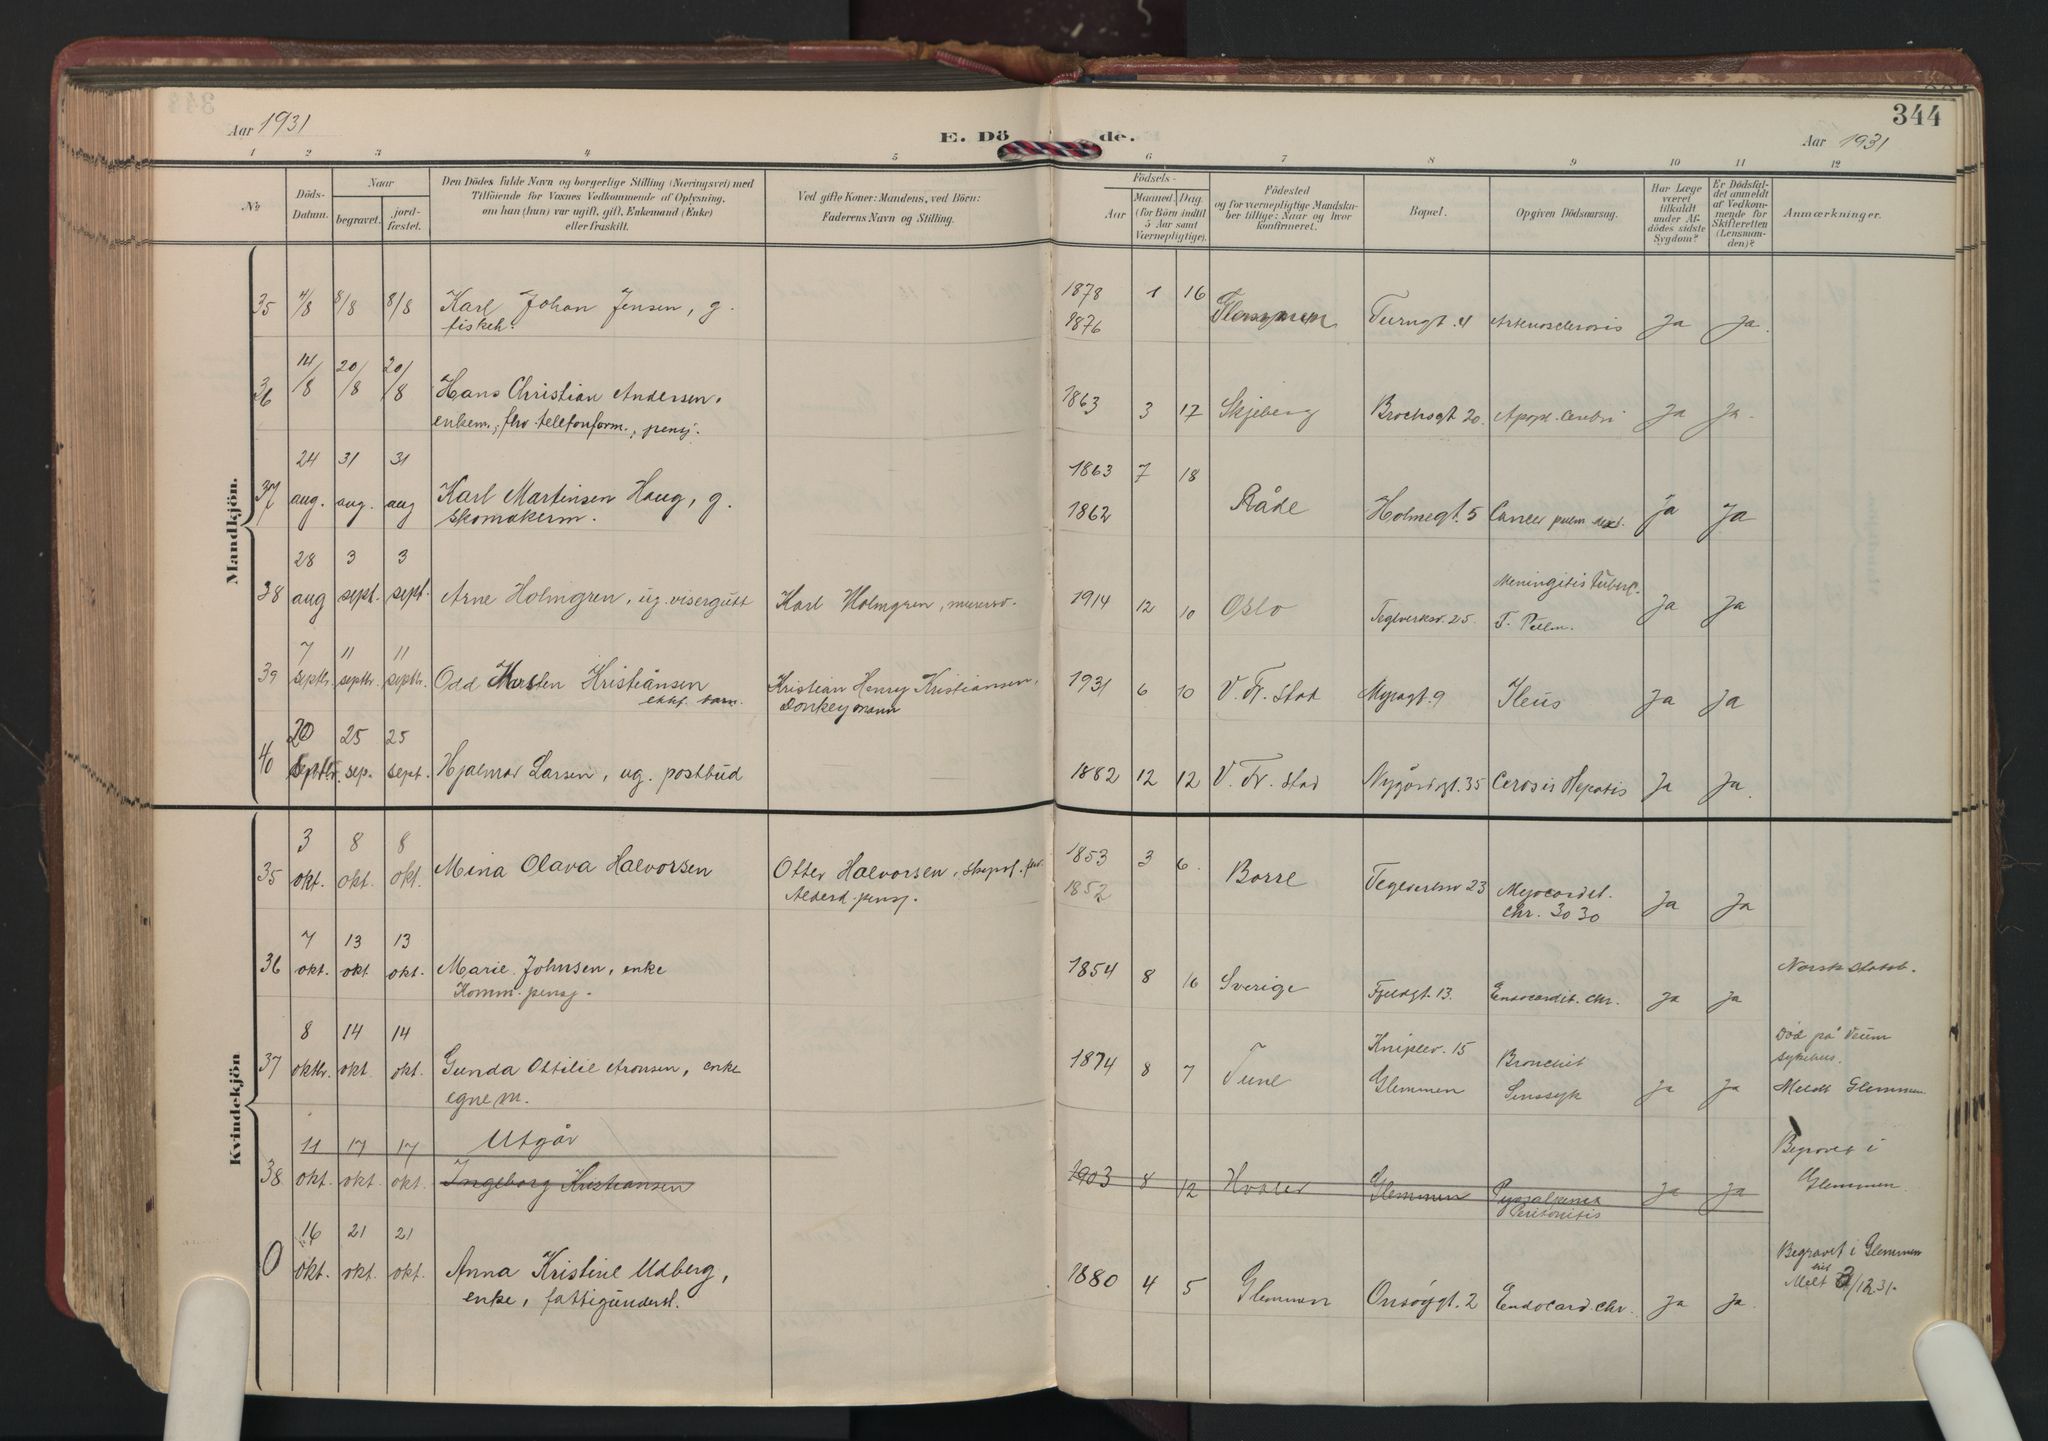 344
Aar 1931
E. Dö de.
Aar 1931
1 2 3 4 5 6 7 8 9 10 11 12
№
Döds-
Datum.
Naar
begravet.
jord-
fæstet.
Den Dödes fulde Navn og borgerlige Stilling (Næringsvei) med
Tilföiende for Voxnes Vedkommende af Oplysning,
om han (hun) var ugift, gift, Enkemand (Enke)
eller fraskilt.
Ved gifte Koner: Mandens, ved Börn:
Faderens Navn og Stilling.
Födsels-
Aar
Maaned. Dag.
(for Börn indtil
5 Aar samt
Værnepligtige).
Födested
og for værnepligtige Mandska-
ber tillige: Naar og hvor
konfirmeret.
Bopæl.
Opgiven Dödsaarsag.
Har Læge
været
tilkaldt
under Af-
dödes sidste
Sygdom?
Er Dödsfal-
det anmeldt
af Vedkom-
mende for
Skifteretten
(Lensman-
den)?
Anmærkninger.
Mandkjön.
35 4/8 8/8 8/8 Karl Johan Jensen, g. 1878 1 16
fiskeh. 1876 Turngt. 4 Ja Ja.
36 14/8 20/8 20/8 Hans Christian Andersen. 1863 3 17 Skjeberg Brochsgt 20. Apopl. Cerebri Ja Ja.
enkem., fhv. telefonform., pensj.
24 31 31 1863 7 18
37 aug. aug. aug Karl Martinsen Haug, g. 1862 Råde Holmegt. 5 Cancer pulm Ja Ja
skomakerm.
28 3 3 Meningitis Tuberc.
38 aug sept. sept. Arne Holmgren, ug. visergutt Karl Holmgren, murersv. 1914 12 10 Oslo Teglverksv. 25. T. Pulm. Ja Ja
7 11 11
39 septbr. septbr. septbr. Odd Kristiansen Kristian Henry Kristiansen, 1931 6 10 V. Fr. stad Myragt. 9 Ileus Ja Ja
ekt. barn. Donkeymann
20 25 25
40 septbr. sep. sept. Hjalmar Larsen, ug. postbud 1882 12 12 V. Fr. stad Nygårdsgt. 35 Cerosis Hepatis Ja Ja.
Kvindekjön
3 8 8 1853 3 6.
35 okt. okt. okt. Mina Olava Halvorsen Otter Halvorsen, 1852 Borre Teglverksv 23 Myocardit. Ja Ja
Alderd. pensj. chr. 30 30
7 13 13
36 okt. okt okt. Marie Johnsen, enke 1854 8 16 Sverige Fjeldgt. 13. Endocardit. chr. Ja Ja Norsk statsb.
Komm. pensj.
8 14 14 Kniplev. 15 Bronchit Död på Veum
sykehus.
37 oktbr. okt. okt. Gunda Ottilie Aronsen, enke 1874 8 7 Tune Glemmen Sinssyk Ja Ja Meldt Glemmen
egne m.
11 17 17 Utgår Begravet i
38 okt. okt. okt. Ingeborg Kristiansen 1903 8 12 Hvaler Glemmen Pyosalpinx Ja Ja Glemmen.
Peritonitis
16 21 21 Begravet i Glemmen
0 okt. okt. okt. Anna Kristine Udberg, 1880 4 5 Glemmen Onsöygt. 2 Endocard. chr. Ja Ja. Melt /12 31.
enke, fattigunderst.